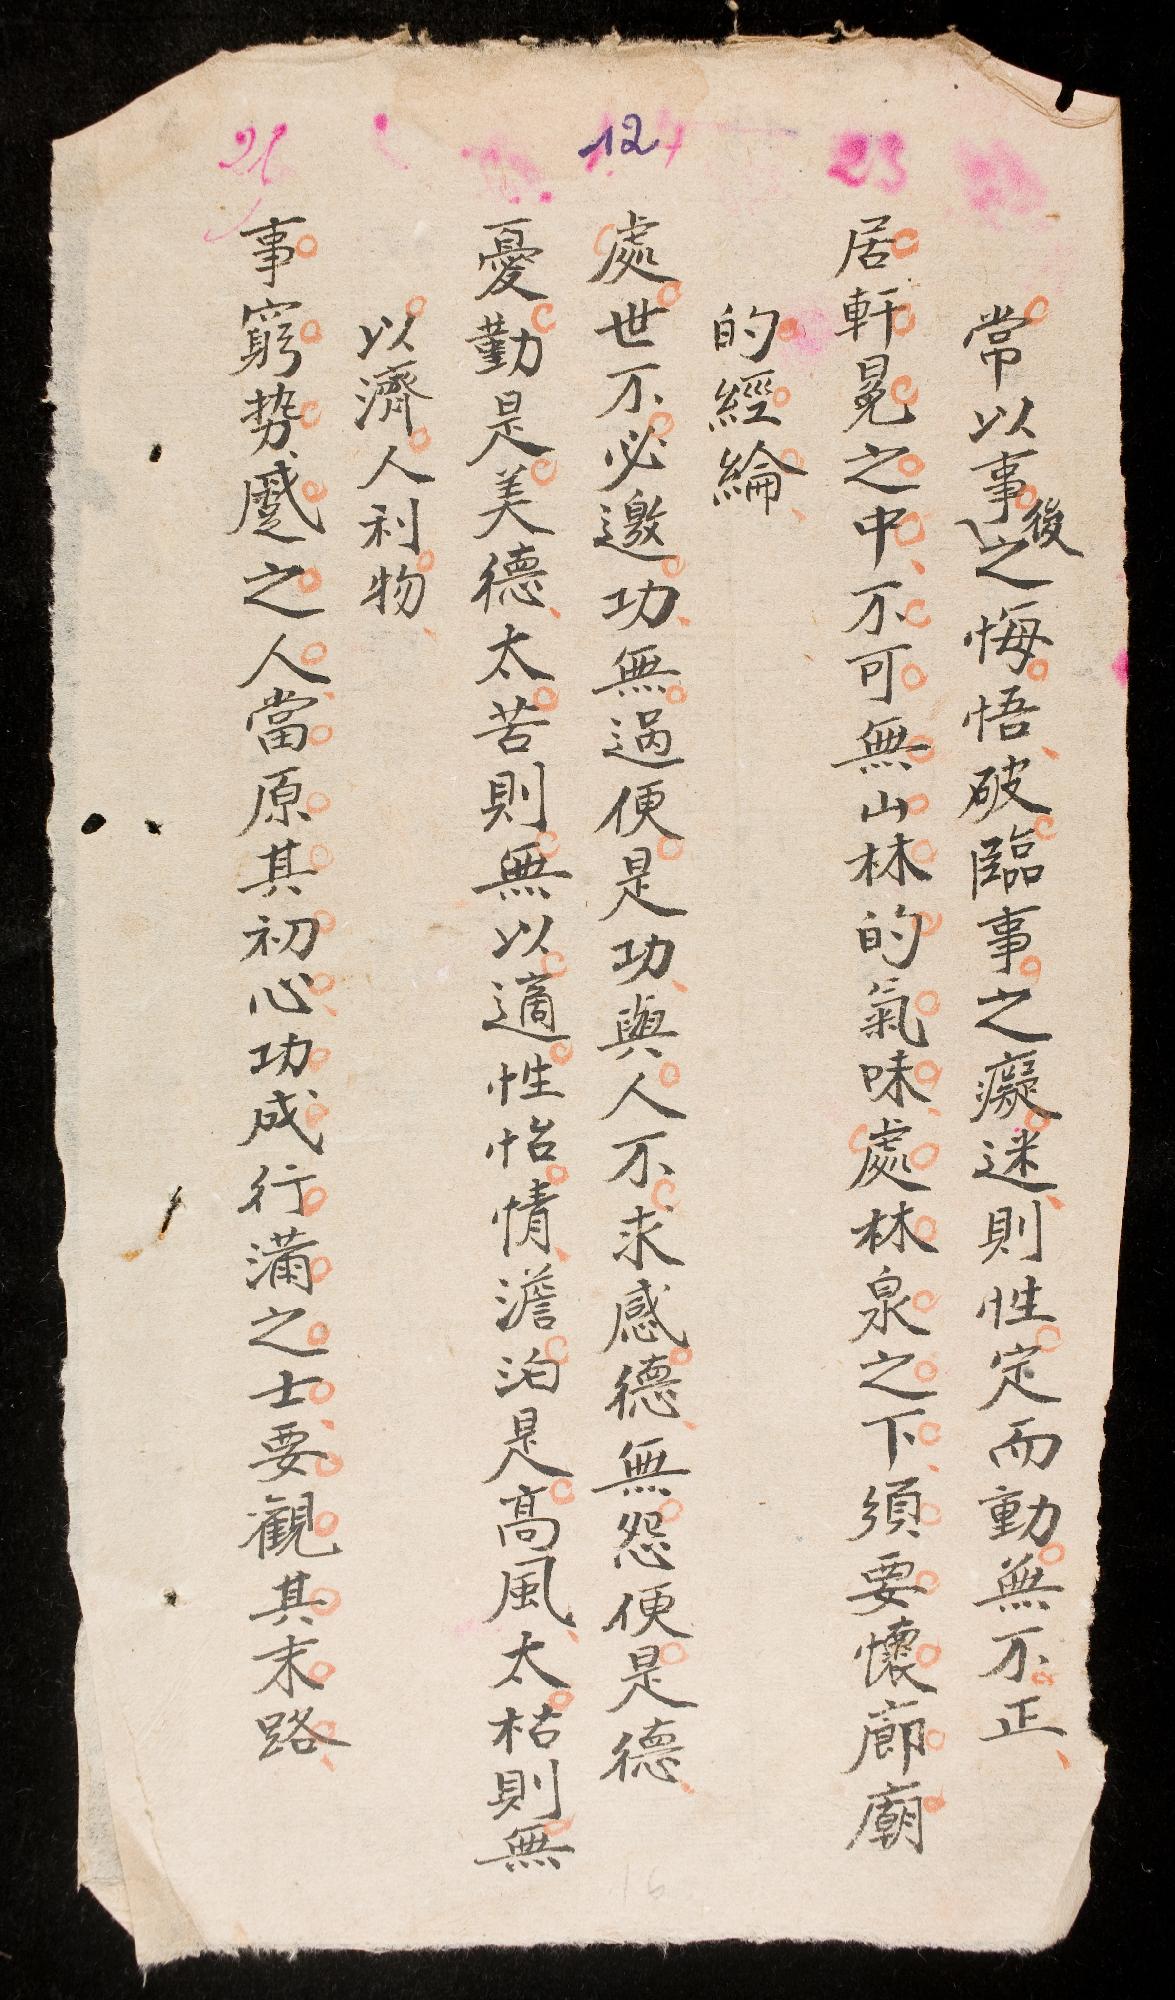 常以事後之悔悟破臨事之癡迷則性定而動無不正
23
居軒冕之中不可無山林的氣味處林泉之下須要懷廊廟
的經綸
12
處世不必邀功無過便是功與人不求感德無怨便是德
憂勤是美德太苦則無以適性怡情澹泊是高風太枯則無
以濟人利物
事窮势蹙之人當原其初心功成行滿之士要觀其末路
16